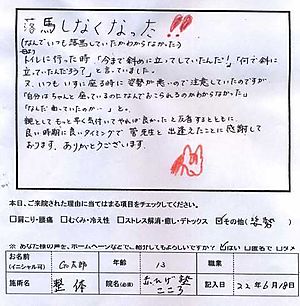 落馬しなくなった!!
(なんでいつも落馬していたかわからなかった)
母より
トイレに行った時「今まで斜めに立ってしていたんだ!」「何で斜めに立っていたんだろう?」と言っていました。
又、いつもイスに座る時に姿勢が悪いので注意していたのですが
「自分はちゃんと座っているのになんでおこられるのかわからなかった。」
「なんだ曲っていたのか…」と。
親としてもっと早く気付いてやれば良かったと反省するとともに、
良い時期に良いタイミングで菅先生と出逢えたことに感謝して
おります。ありがとうございます。
本日、ご来院された理由に当てはまる項目をチェックしてください。
□肩こり・腰痛 □むくみ・冷え性 □ストレス解消・癒し・デトックス ☑その他(姿勢)
※あなた様の声を、ホームページなどで、紹介してもよろしいですか? はい □匿名で □ダメ
お名前 (イニシャル可) 年齢 13 職業
施術名 整体 院名(必須) ひげ塾 こころ 記入日 22年6月18日